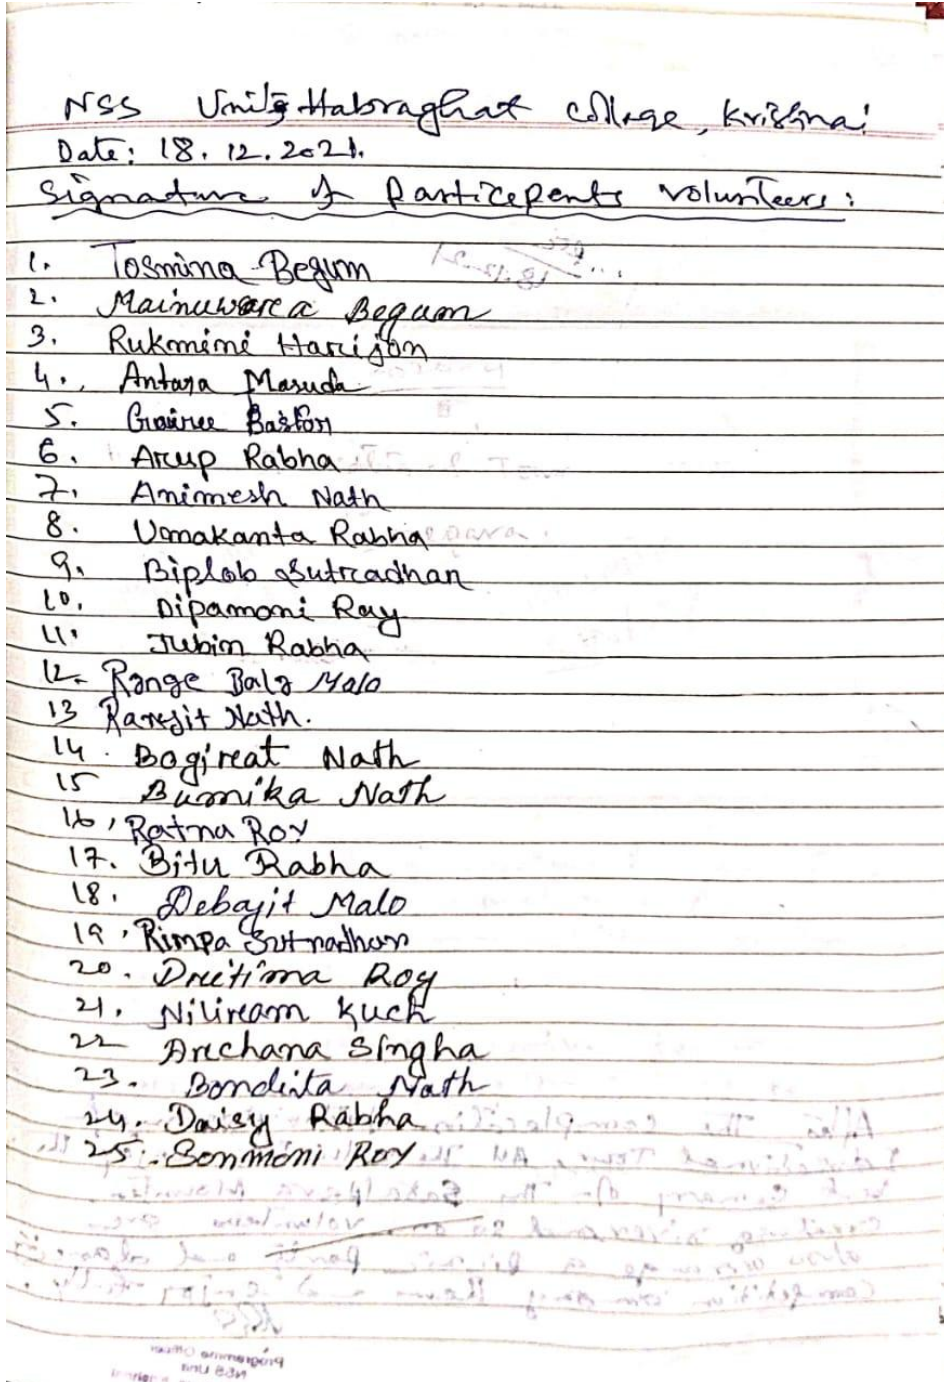 NSS Unit, Habraghat College, Krishnai
Date: 18.12.2021.
Signature of Particepents Volunteers:
1. Tosmina Begum
2. Mainuwara Begum
3. Rukmini Harijon
4. Antara Masuda
5. Basfor
6. Arup Rabha
7. Animesh Nath
8. Umakanta Rabha
9. Biplob Sutradhar
10. Dipamoni Ray
11. Jubin Rabha
12. Range Bala Malo
13 Ranjit Nath.
14. Bogirat Nath
15 Bumika Nath
16, Ratna Roy
17. Bitu Rabha
18. Debajit Malo
19, Rimpa Sutradhar
20. Dritima Roy
21. Niliram Kuch
22 Archana Singha
23. Bondita Nath
24. Daisy Rabha
25. Sonmoni Roy